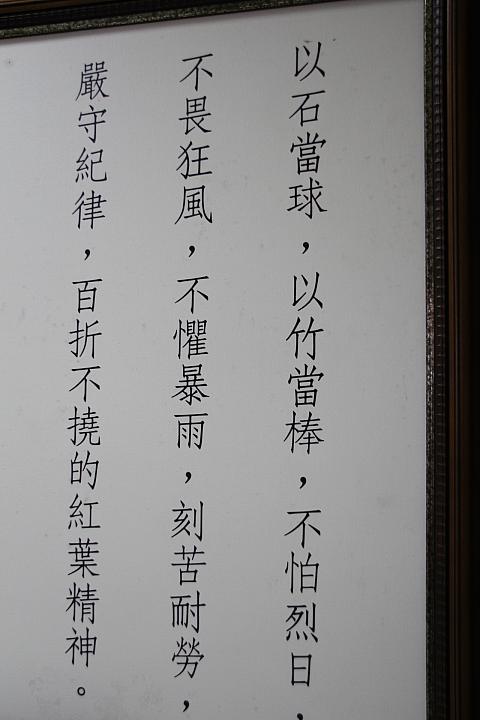 以石當球，以竹當棒，不怕烈日，
不畏狂風，不懼暴雨，刻苦耐勞，
嚴守紀律，百折不撓的紅葉精神。